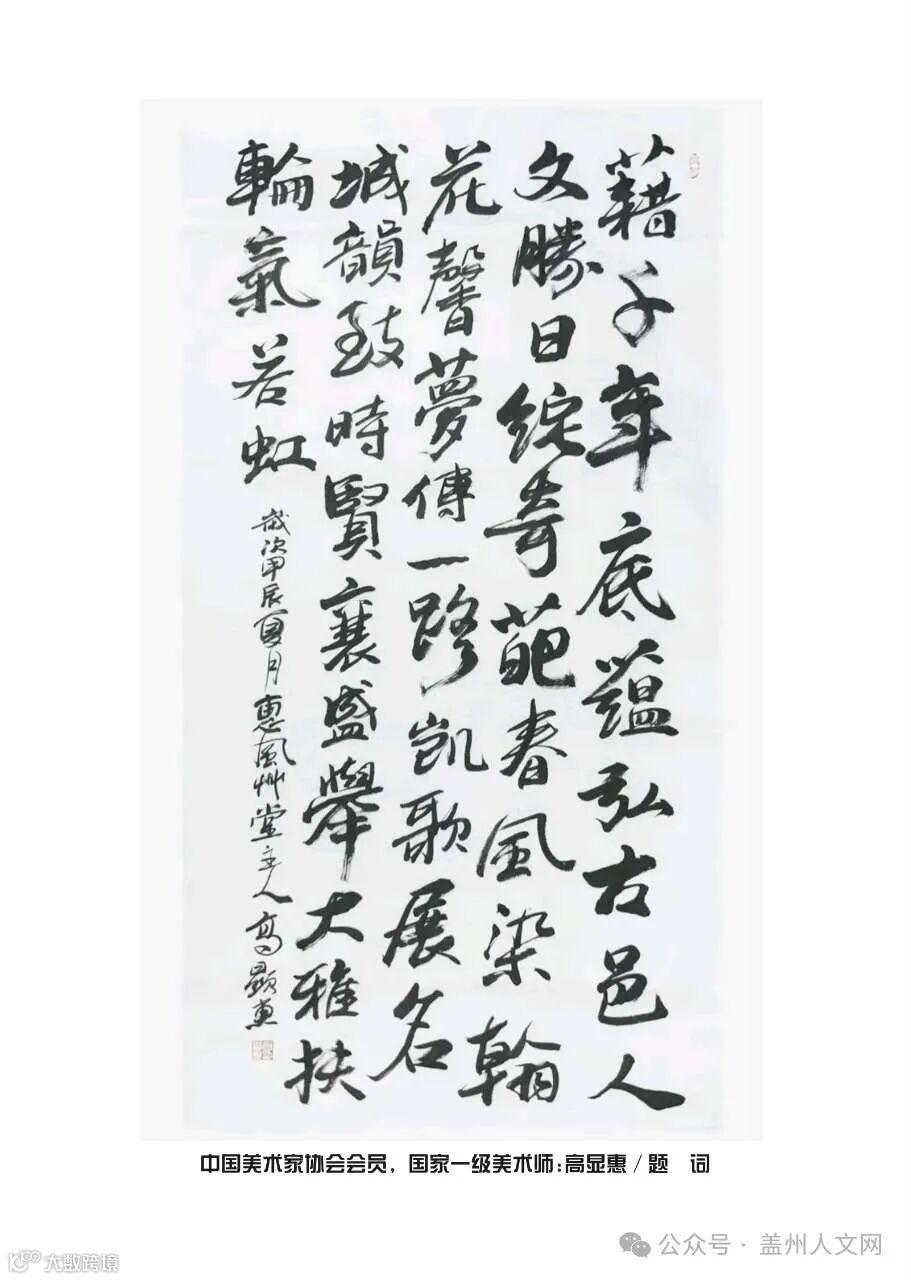 藉千年底蕴弘古邑人
文勝日綻奇葩春風染翰
花馨夢傳一路凯歌展名
城韻致時賢襄盛舉大雅扶
輪氣若虹
歲次甲辰夏月惠風艸堂主人高顯惠
中国美术家协会会员，国家一级美术师：高显惠／题 词
公众号·盖州人文网
大数跨境